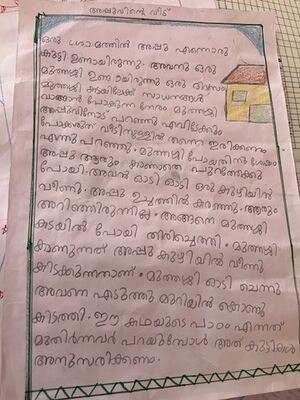 അപ്പുവിന്റെ വീട്
ഒരു ഗ്രാമത്തിൽ അപ്പു എന്നൊരു
കുട്ടി ഉണ്ടായിരുന്നു. അവനു ഒരു
മുത്തശ്ശി ഉണ്ടായിരുന്നു ഒരു ദിവസം
മുത്തശ്ശി കടയിലേക്ക് സാധനങ്ങൾ
വാങ്ങാൻ പോകുന്ന നേരം മുത്തശ്ശി
അപ്പുവിനോട് പറഞ്ഞു എവിടേക്കും
പോകരുത് വീടിനുള്ളിൽ തന്നെ ഇരിക്കണം
എന്നു പറഞ്ഞു. മുത്തശ്ശി പോയതിന് ശേഷം
അപ്പു ആരും കാണാതെ പുറത്തേക്കു
പോയി. അവൻ ഓടി ഓടി ഒരു കുഴിയിൽ
വീണു. അപ്പു ഉച്ചത്തിൽ കരഞ്ഞു. ആരും
അറിഞ്ഞിരുന്നില്ല. അങ്ങനെ മുത്തശ്ശി
കടയിൽ പോയി തിരിച്ചെത്തി. മുത്തശ്ശി
കാണുന്നത് അപ്പു കുഴിയിൽ വീണു
കിടക്കുന്നതാണ്. മുത്തശ്ശി ഓടി ചെന്നു
അവനെ എടുത്തു മുറിയിൽ കൊണ്ടു
കിടത്തി. ഈ കഥയുടെ പാഠം എന്നത്
മുതിർന്നവർ പറയുമ്പോൾ അത് കുട്ടികൾ
അനുസരിക്കണം.